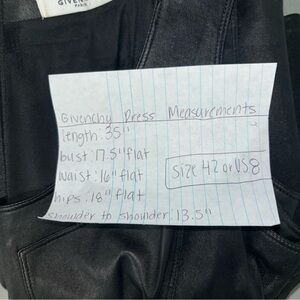 GIVEN
PARIS
Givenchy Dress Measurements
length: 35"
bust: 17.5" flat
waist: 16" flat
Size 42 or US 8
hips: 18" flat
shoulder to shoulder: 13.5"